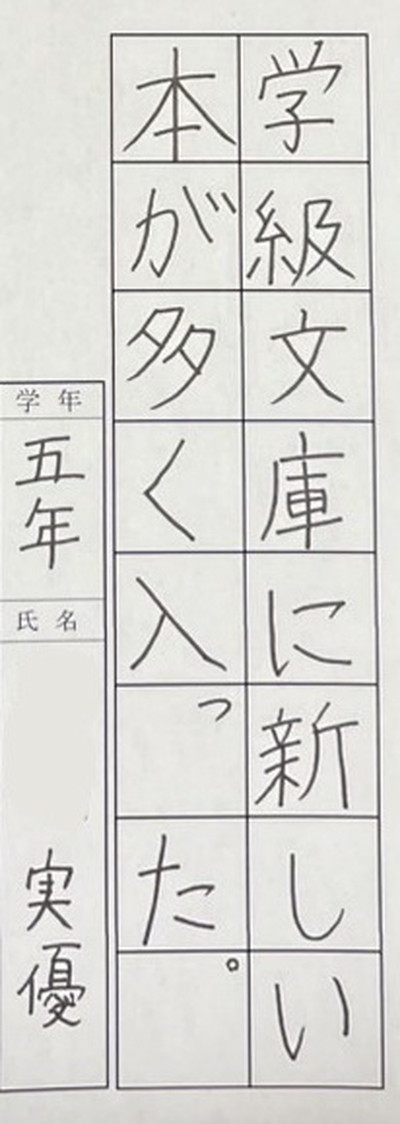 学級文庫に新しい
本が多く入った。
学年
五年
氏名
実優